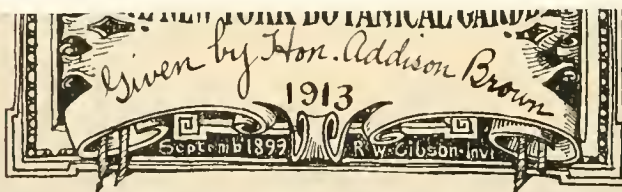 THE NEW YORK BOTANICAL GARDEN
Given by Hon. Addison Brown
1913
Septemb 1899 R·W·Gibson·Invt